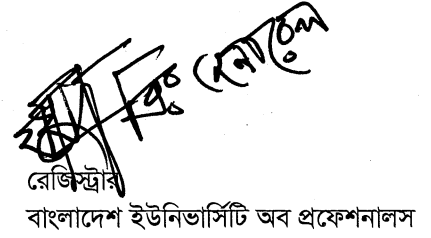 ব্রিঃ জেনারেল
রেজিস্ট্রার
বাংলাদেশ ইউনিভার্সিটি অব প্রফেশনালস